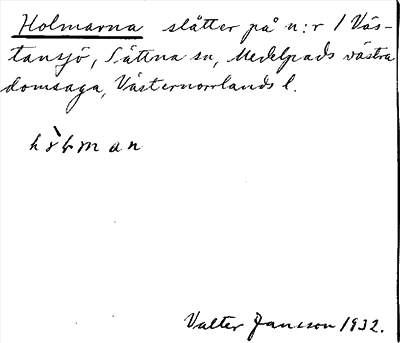 Holmarna slåtter på n:r 1 Väs-
tansjö, Sättna sn, Medelpads västra
domsaga, Västernorrlands l.
Valter Jansson 1932.